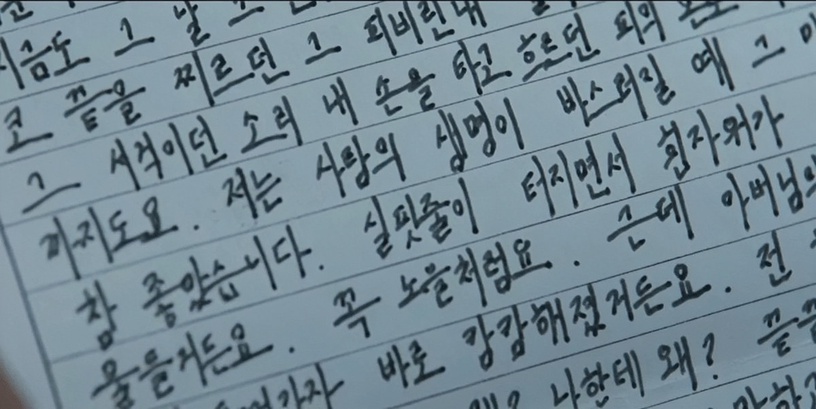 지금도 그 날 그
코 끝을 찌르던 그 피비린내
그 서걱이던 소리 내 손을 타고 흐르던 피의
까지도요. 저는 사람의 생명이 바스러질 때 그
참 좋았습니다. 실핏줄이 터지면서 흰자위가
물들거든요. 꼭 노을처럼요. 근데 아버님의
바로 캄캄해졌거든요. 전
왜? 나한테 왜?